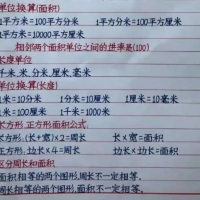 单位换算(面积)
1平方米=100平方分米 1平方分米=100平方厘米
1平方米=10000平方厘米
相邻两个面积单位之间的进率是(100)
长度单位
千米、米、分米、厘米、毫米
单位换算(长度)
1米=10分米 1分米=10厘米 1厘米=10毫米
1米=100厘米 1千米=1000米
长方形、正方形面积公式:
长方形:(长+宽)×2=周长 长×宽=面积
正方形:边长×4=周长 边长×边长=面积
区分周长和面积
面积相等的两个图形,周长不一定相等.
周长相等的两个图形,面积不一定相等.